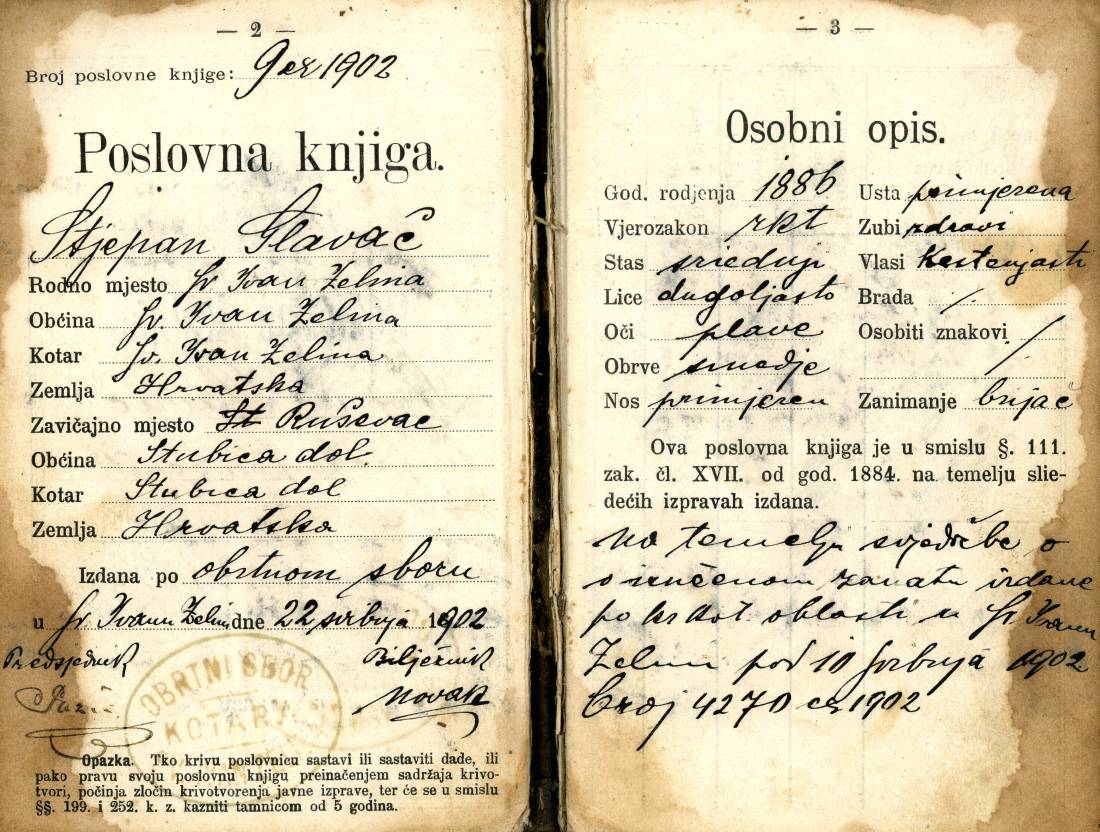 — 2 —
Broj poslovne knjige: 9 ex 1902
Poslovna knjiga.
Stjepan Glavač
Rodno mjesto Sv Ivan Zelina
Občina Sv. Ivan Zelina
Kotar Sv. Ivan Zelina
Zemlja Hrvatska
Zavičajno mjesto St Ruševac
Občina Stubica dol.
Kotar Stubica dol
Zemlja Hrvatska
Izdana po obrtnom sboru
u Sv Ivanu Zelini dne 22 svibnja 1902
Predsjednik Bilježnik
Novak
OBRTNI SBOR
KOTARA
Opazka. Tko krivu poslovnicu sastavi ili sastaviti dade, ili
pako pravu svoju poslovnu knjigu preinačenjem sadržaja krivo-
tvori, počinja zločin krivotvorenja javne izprave, ter će se u smislu
§§. 199. i 252. k. z. kazniti tamnicom od 5 godina.
— 3 —
Osobni opis.
God. rodjenja 1886
Vjerozakon rkt
Stas sriednji
Lice dugoljasto
Oči plave
Obrve smedje
Nos primjeren
Usta primjerena
Zubi zdravi
Vlasi Kestenjasti
Brada /.
Osobiti znakovi /
Zanimanje brijač
Ova poslovna knjiga je u smislu §. 111.
zak. čl. XVII. od god. 1884. na temelju slie-
dećih izpravah izdana.
na temelju svjedočbe o
o izučenom zanatu izdane
po kr kot oblasti u Sv Ivanu
Zelini pod 10 svibnja 1902
broj 4270 ex 1902